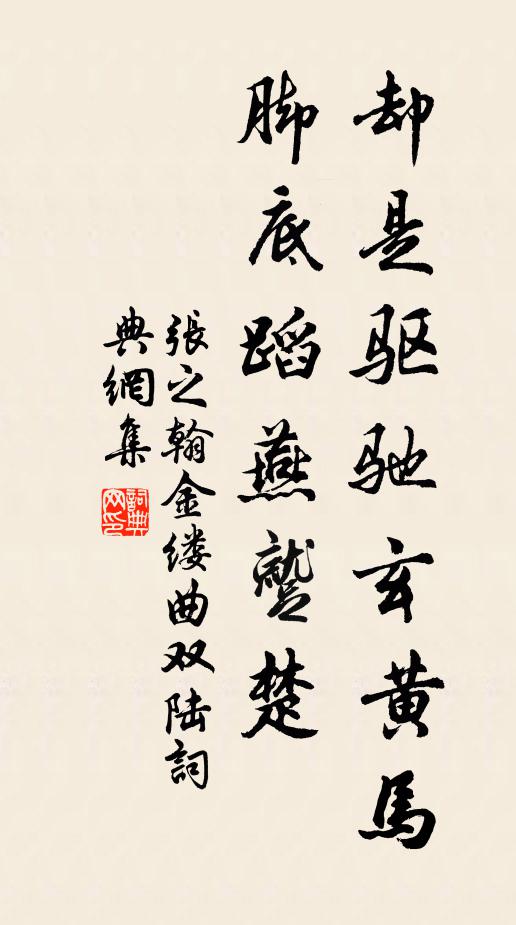 却是驱驰玄黄馬
脚底蹈燕蹵楚
張之翰金缕曲双陆詞
典網集
詞典网印